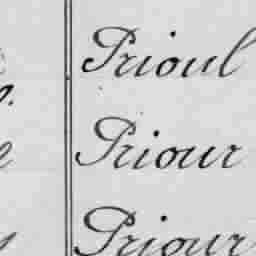 Prioul
Priour
Priour